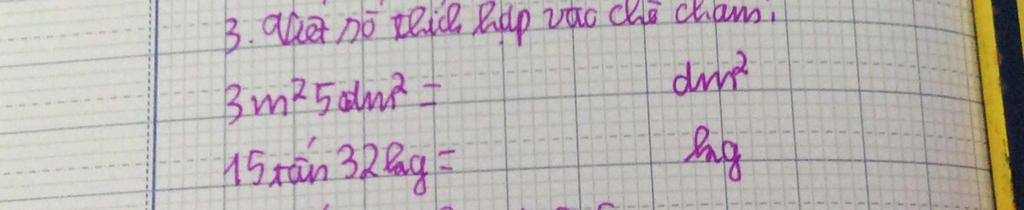 3. Viết số thích hợp vào chỗ chấm.
3m² 5dm² = dm²
15 tấn 32kg = kg